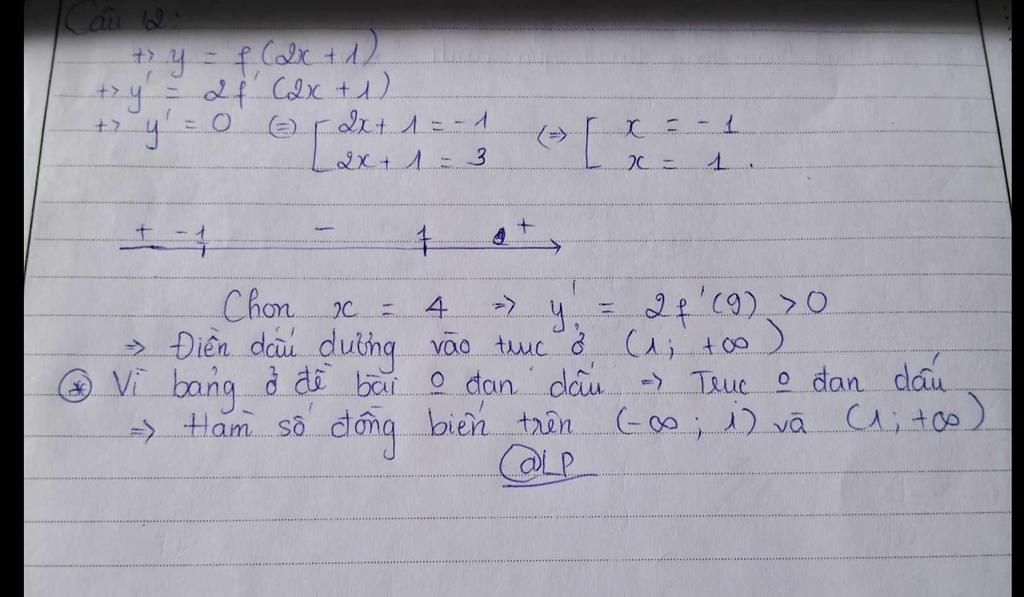 Câu 12:
+> y = f(2x + 1)
+> y' = 2f'(2x + 1)
+> y' = 0 (=) [ 2x + 1 = -1 (=> [ x = -1
2x + 1 = 3 x = 1.
+ -1 - 1 +
Chon x = 4 => y' = 2f'(9) > 0
=> Điền dấu dương vào trục ở (1; +∞)
* Vì bảng ở đề bài o đan dấu => Trục o đan dấu
=> Hàm số đồng biến trên (-∞; 1) và (1; +∞)
@LP